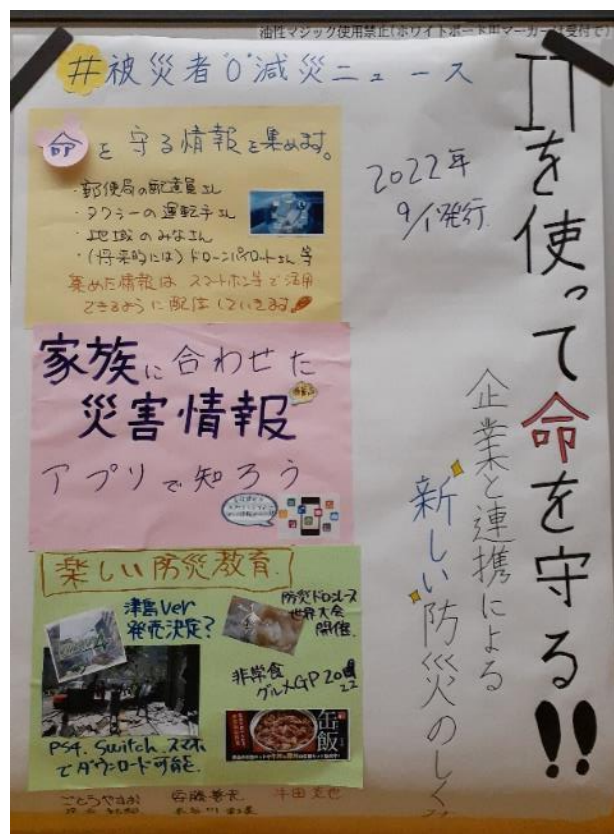 油性マジック使用禁止(ホワイトボード用マーカーは受付で)
#被災者"0"減災ニュース
ITを使って命を守る!!
企業と連携による
新しい防災のしくみ
2022年
9/1発行.
命を守る情報を集めます。
・郵便局の配達員さん
・タクシーの運転手さん
・地域のみなさん
・(将来的には)ドローンパイロットさん 等
集めた情報は スマートホン等で活用
できるように配信していきます
家族に合わせた
災害情報
アプリで知ろう
楽しい防災教育
津島Ver
発売決定?
防災ドローンレース
世界大会
開催.
非常食
グルメGP 2022
缶飯
PS4. Switch. スマホ
でダウンロード可能.
ごとうやすお